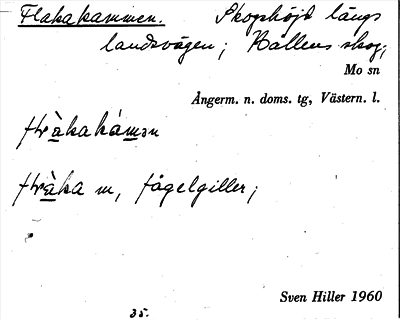 Flakakammen. Skogshöjd längs
landsvägen; Bållens skog;
Mo sn
Ångerm. n. doms. tg, Västern. l.
flràkakámən
flràka m, fågelgiller;
Sven Hiller 1960
35.